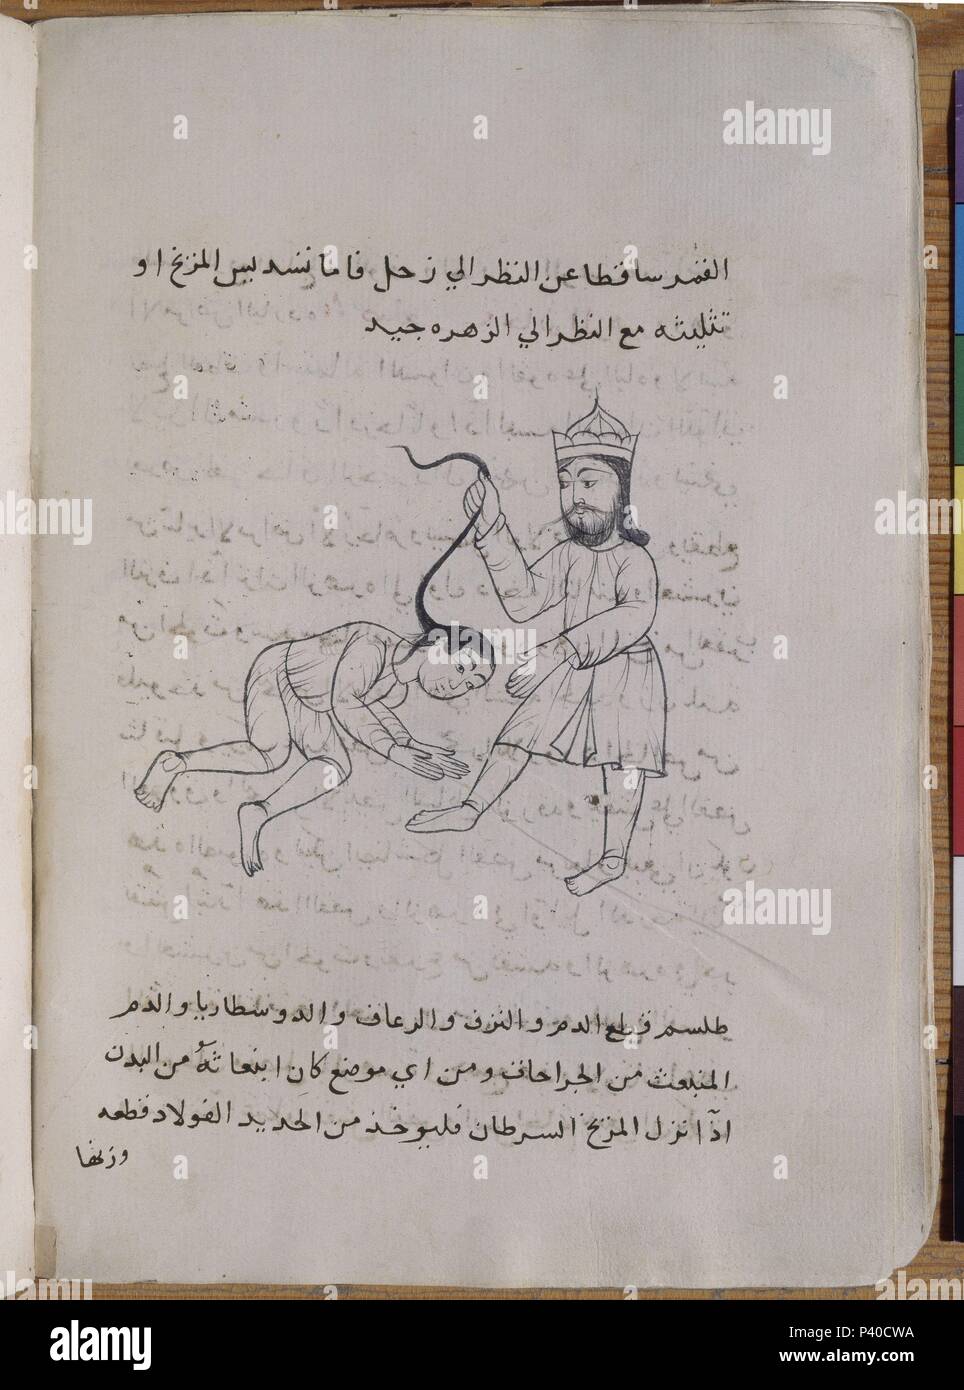 القمر ساقطا عن النظر الي زحل فاما تسديس المريخ او
تثليثه مع النظر الي الزهره جيد
طلسم قطع الدم والنزف والرعاف والدوسنطاريا والدم
المنبعث من الجراحات ومن اي موضع كان انبعاثه من البدن
اذا نزل المريخ السرطان فليوخذ من الحديد الفولاد قطعه
وزنها
alamy
Image ID: P40CWA
www.alamy.com